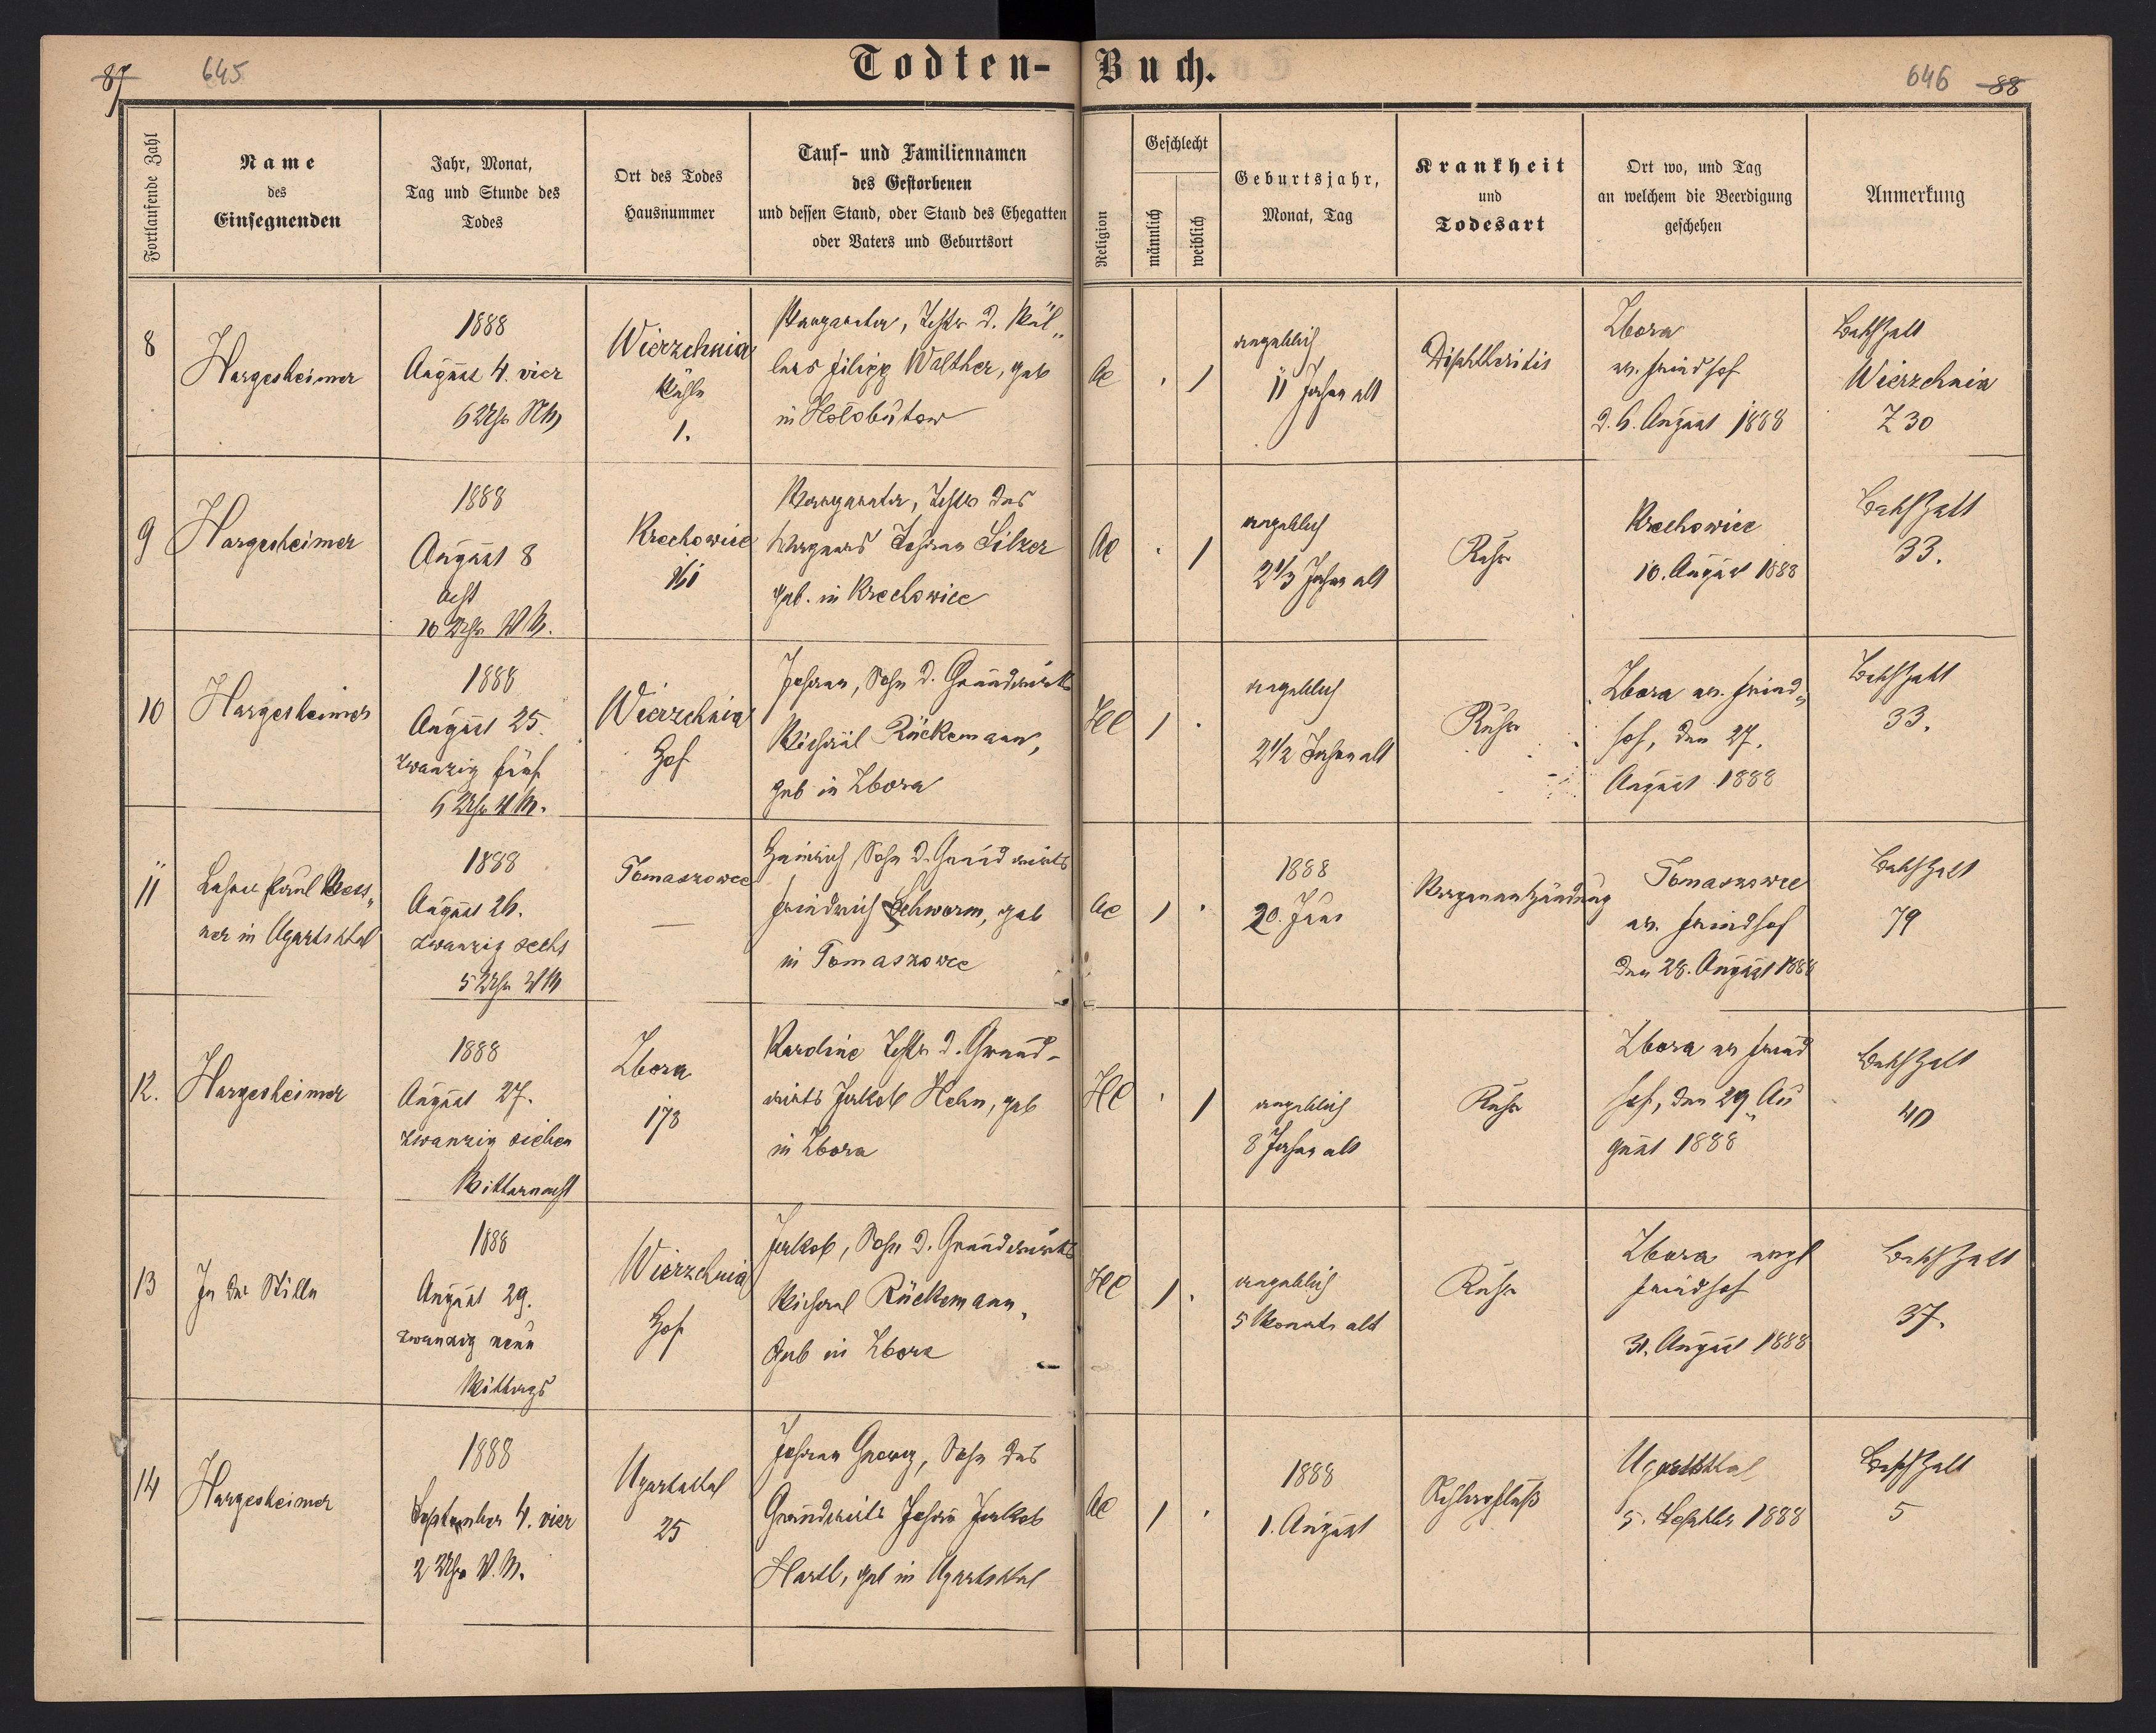 87 645
Todten-Buch.
646 88
Fortlaufende Zahl
Name
des
Einsegnenden
Jahr, Monat,
Tag und Stunde des
Todes
Ort des Todes
Hausnummer
Tauf- und Familiennamen
des Gestorbenen
und dessen Stand, oder Stand des Ehegatten
oder Vaters und Geburtsort
Religion
Geschlecht
männlich
weiblich
Geburtsjahr,
Monat, Tag
Krankheit
und
Todesart
Ort wo, und Tag
an welchem die Beerdigung
geschehen
Anmerkung
8
Hargesheimer
1888
August 4. vier
6 Uhr NM
Wierzchnia
Mühle
1.
Margareta, Tochter d. Mül„
lers Filipp Walther, geb
in Hołobutow
AC
. 1
angeblich
11 Jahre alt
Diphtheritis
Zbora
ev. Friedhof
d. 6. August 1888
Beth Zall
Wierzchnia
Z 30
9
Hargesheimer
1888
August 8
acht
10 Uhr VM.
Krechowice
161
Margareta, Tochter des
Wagners Johann Silzer
geb. in Krechowice
AC
. 1
angeblich
2 1/3 Jahre alt
Ruhr
Krechowice
10. August 1888
Beth Zall
33.
10
Hargesheimer
1888
August 25.
zwanzig fünf
6 Uhr VM.
Wierzchnia
Hof
Johann, Sohn d. Grundwirts
Michael Rückemann,
geb in Zbora
HC
1 .
angeblich
2 1/2 Jahre alt
Ruhr
Zbora ev. Fried„
hof, den 27.
August 1888
Beth Zall
33.
11
Lehrer Paul Mess„
ner in Ugartsthal
1888
August 26.
zwanzig sechs
5 Uhr VM
Tomaszowce
—
Heinrich Sohn d. Grundwirts
Friedrich Schwarm, geb
in Tomaszowce
AC
1 .
1888
20. Juni
Magenentzündung
Tomaszowce
ev. Friedhof
den 28. August 1888
Beth Zall
79
12.
Hargesheimer
1888
August 27.
zwanzig sieben
Mitternacht
Zbora
173
Karoline Tochter d. Grund-
wirts Jakob Hehn, geb
in Zbora
HC
. 1
angeblich
8 Jahre alt
Ruhr
Zbora ev Fried
hof, den 29. Au
gust 1888
Beth Zall
40
13
In der Stille
1888
August 29.
zwanzig neun
Mittags
Wierzchnia
Hof
Jakob, Sohn d. Grundwirts
Michael Rückemann,
Geb in Zbora
HC
1 .
angeblich
5 Monate alt
Ruhr
Zbora evgl
Friedhof
31. August 1888
Beth Zall
37.
14
Hargesheimer
1888
September 4. vier
2 Uhr V.M.
Ugartsthal
25
Johann Georg, Sohn des
Grundwirts Johann Jakob
Hartl, geb in Ugartsthal
AC
1 .
1888
1. August
Schlagfluß
Ugartsthal
5. Septbr 1888
Beth Zall
5